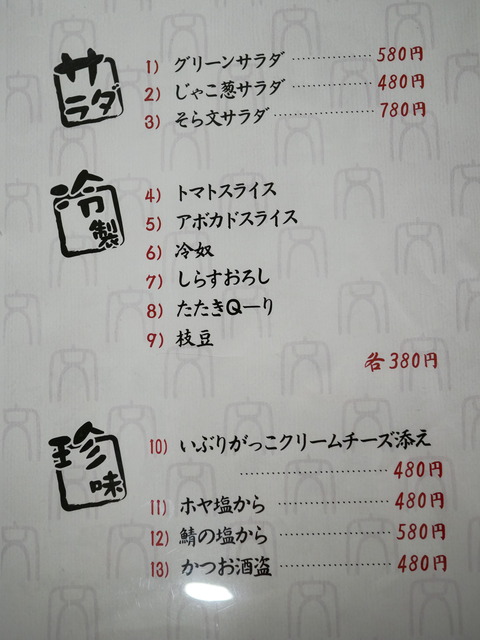 サラダ
1) グリーンサラダ ……………… 580円
2) じゃこ葱サラダ ……………… 480円
3) そら文サラダ ……………… 780円
冷製
4) トマトスライス
5) アボカドスライス
6) 冷奴
7) しらすおろし
8) たたきQーり
9) 枝豆
各380円
珍味
10) いぶりがっこクリームチーズ添え
……………… 480円
11) ホヤ塩から ……………… 480円
12) 鯖の塩から ……………… 580円
13) かつお酒盗 ……………… 480円